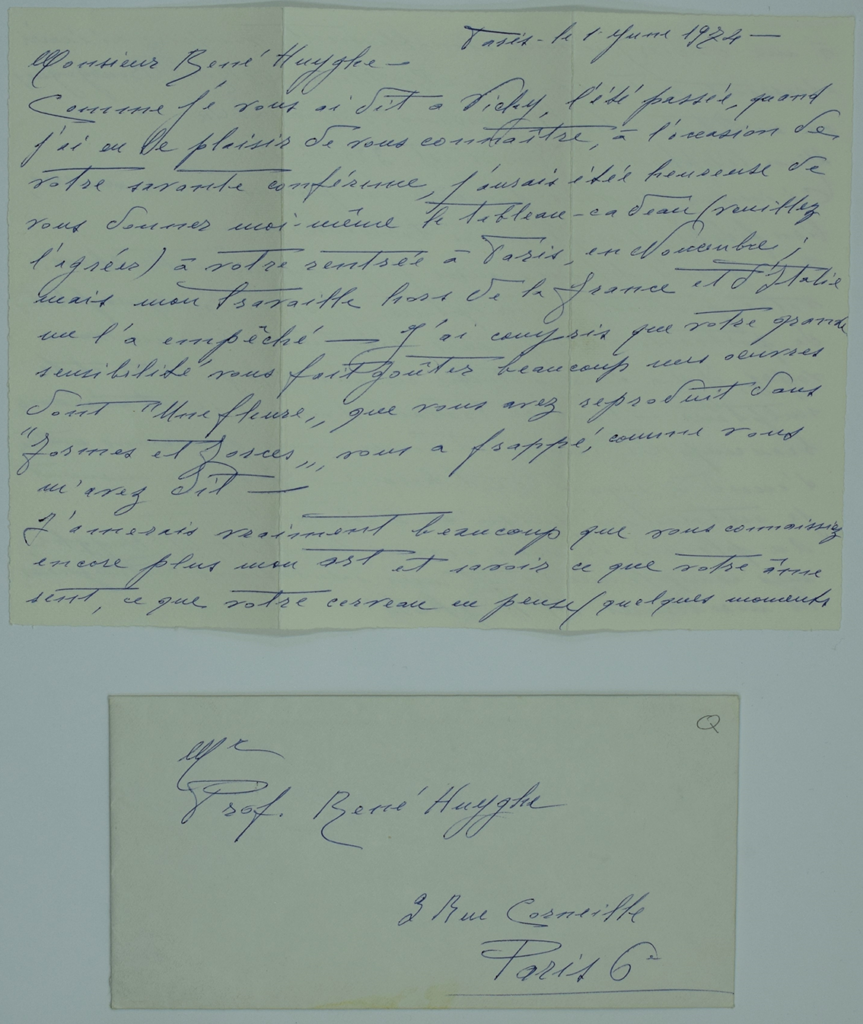 Paris - le 1 June 1974 —
Monsieur René Huyghe —
Comme je vous ai dit a Vichy, l'été passée, quand
j'ai eu le plaisir de vous connaître, à l'occasion de
votre savante conférence, j'aurais étée heureuse de
vous donner moi-même le tableau-cadeau (veuillez
l'agréer) à votre rentrée à Paris, en Novembre;
mais mon travaille hors de la France et d'Italie
me l'a empêché — J'ai compris que votre grande
sensibilité vous fait goûter beaucoup mes oeuvres
dont "Une fleure„ que vous avez reproduit dans
"Formes et Forces„, vous a frappé, comme vous
m'avez dit —
J'amerais vraiment beaucoup que vous connaissiez
encore plus mon art et savoir ce que votre âme
sent, ce que votre cerveau en pense (quelques moments
Q
Mr
Prof. René Huyghe
3 Rue Corneille
Paris 6e